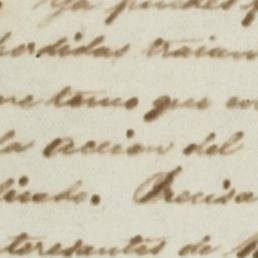 Ya puedes
perdidas traian
me temo que en
la accion del
licado. Precisa
teresantes de